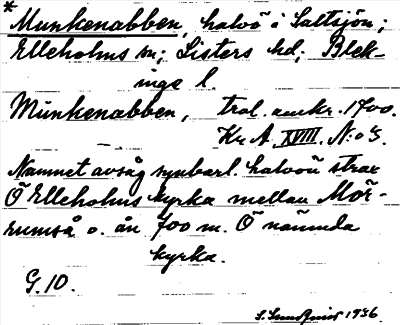 * Munkenabben, halvö i Saltsjön;
Elleholms sn; Listers hd; Blek-
inge l.
Munkenabben, trol. omkr. 1700.
Kr. A. XVIII. N:o 3.
Namnet avsåg synbarl. halvön strax
Ö Elleholms kyrka mellan Mör-
rumså o. ån 700 m. Ö nämnda
kyrka.
G. 10.
1936.